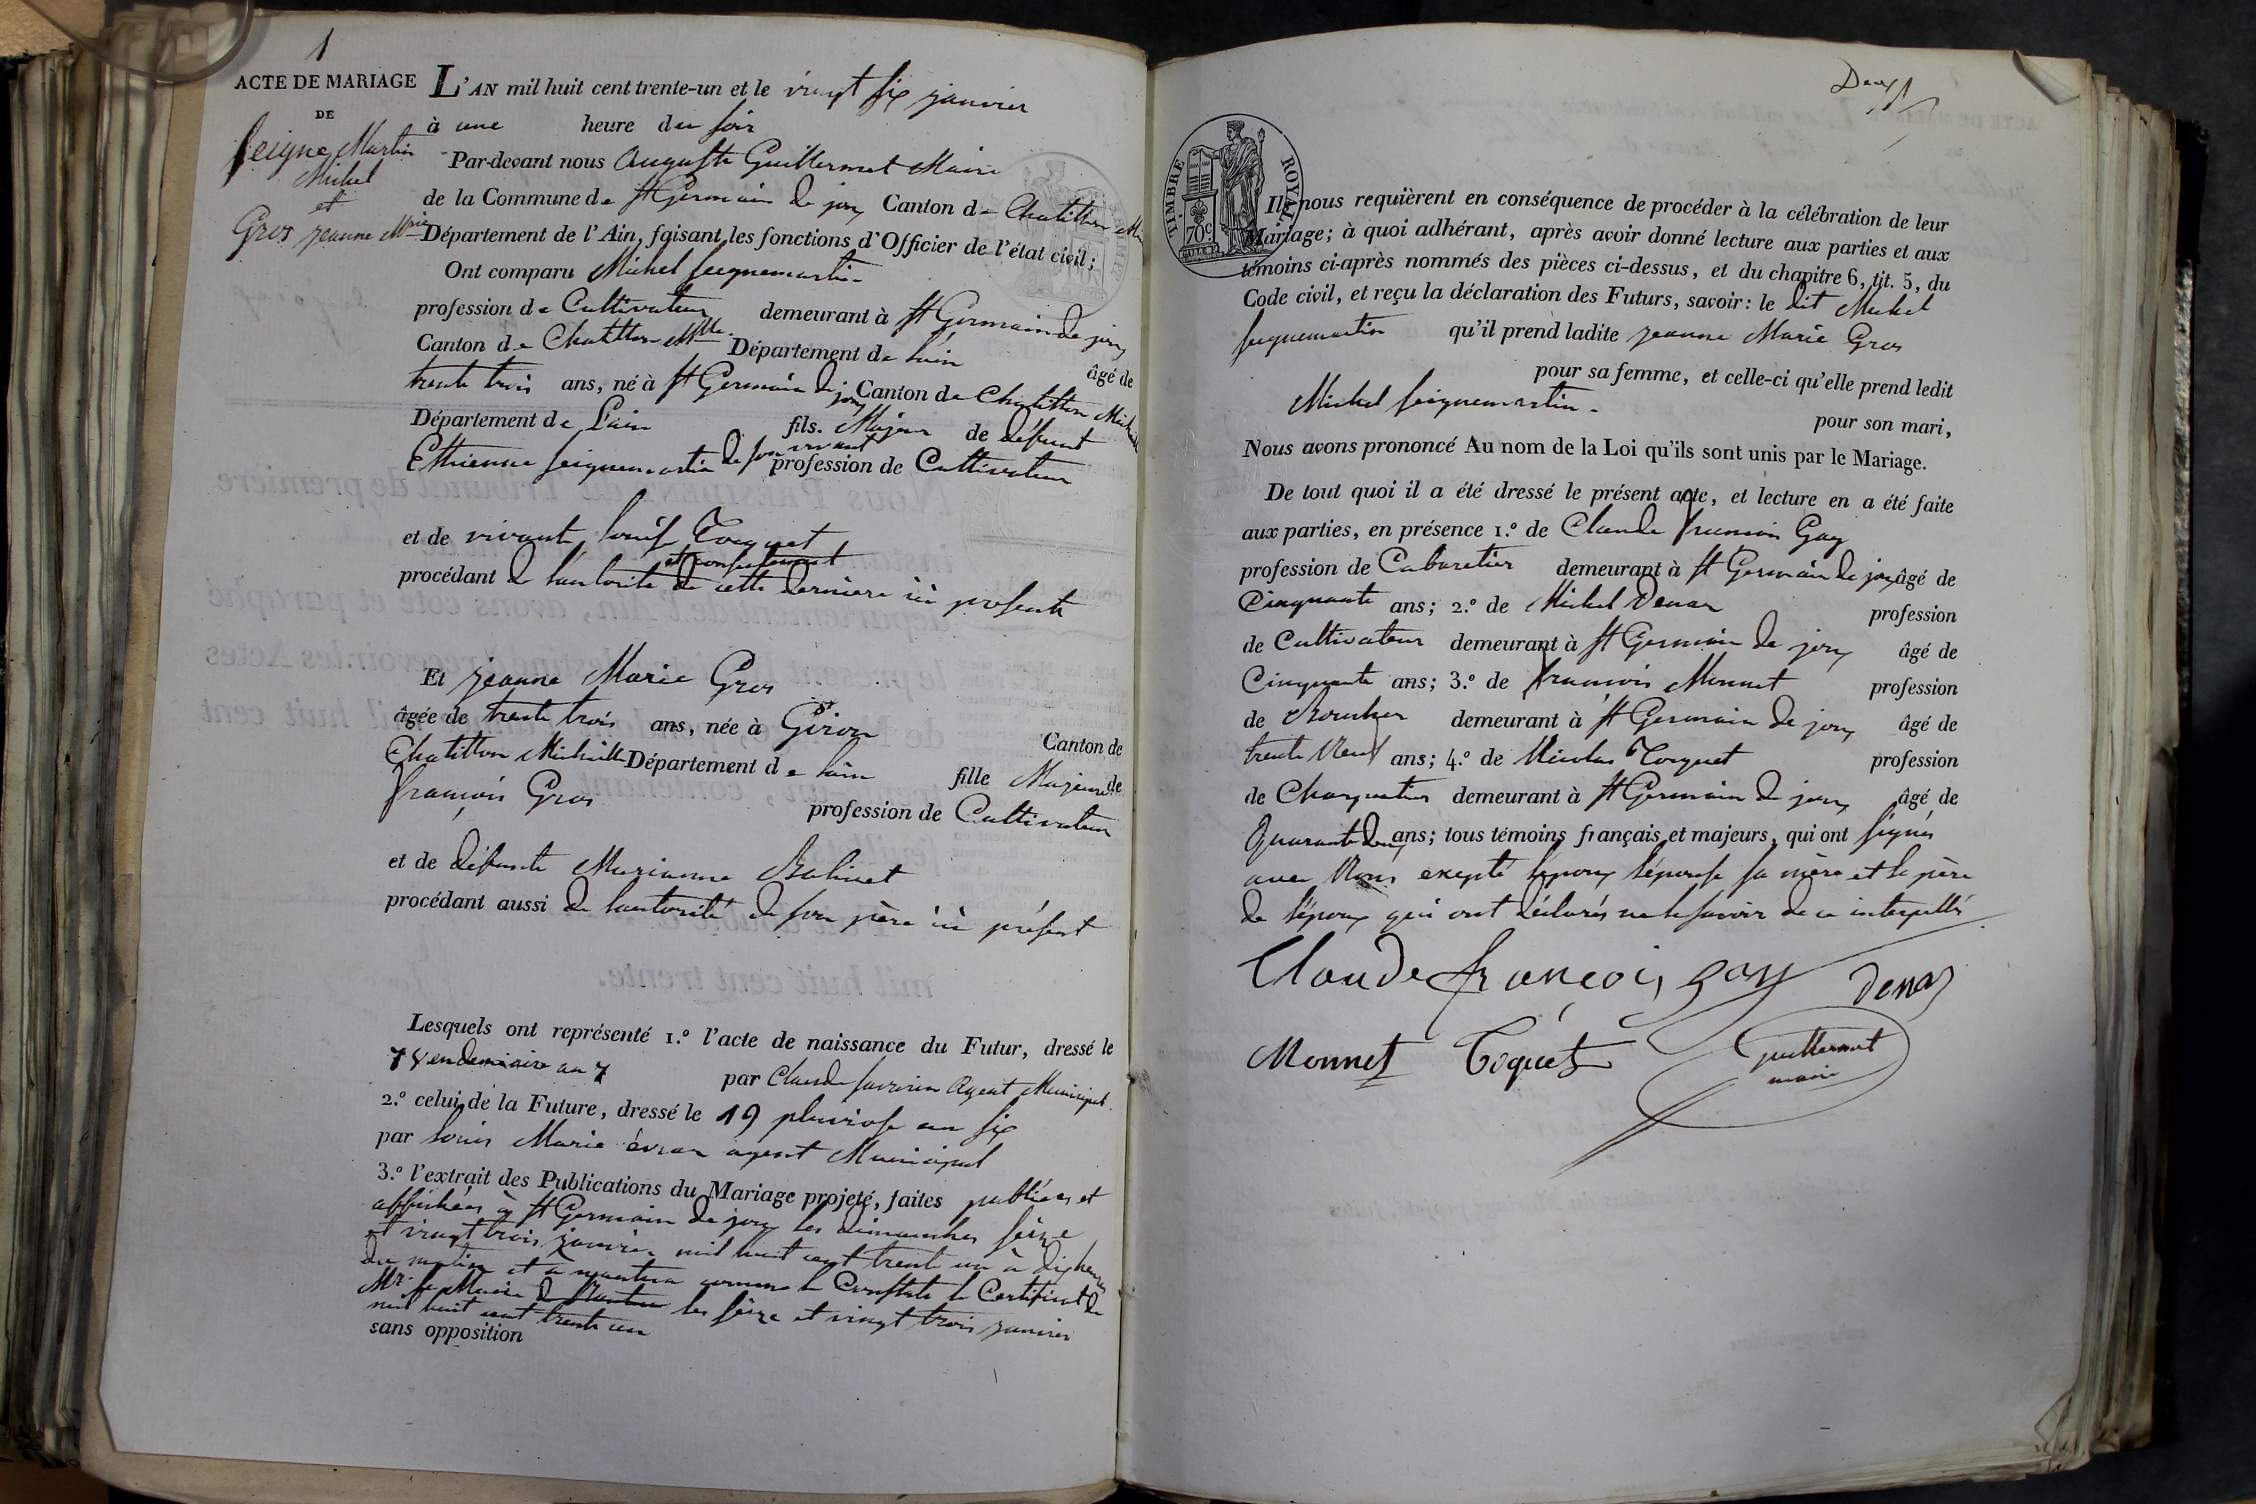 1
ACTE DE MARIAGE
DE
Seigne Martin
Michel
et
Gros jeanne Mrie
L'AN mil huit cent trente-un et le vingt six janvier
à une heure du soir
Par-devant nous Auguste Guillermet Maire
de la Commune de St Germain de joux Canton de Chatillon Mi
Département de l'Ain, faisant les fonctions d'Officier de l'état civil;
Ont comparu Michel seignemartin
profession de Cultivateur demeurant à St Germain de joux
Canton de Chatillon Mlle. Département de l'ain âgé de
trente trois ans, né à St Germain de joux Canton de Chatillon Michaille
Département de L'ain fils. Majeur de défunt
Ethienne seignemartin de son vivant profession de Cultivateur
et de vivante Louise Tocquet
et consentement
procédant de l'autorité de cette dernière ici présente
Et jeanne Marie Gros
âgée de trente trois ans, née à Giron Canton de
Chatillon Michaille Département de l'ain fille Majeure de
françois Gros profession de Cultivateur
et de défunte Marianne Balivet
procédant aussi de l'autorité de son père ici présent
Lesquels ont représenté 1.º l'acte de naissance du Futur, dressé le
7 Vendemiaire an 7 par Claude savarin Agent Municipal.
2.º celui de la Future, dressé le 19 pluviose an six
par Louis Marie évrar agent Municipal
3.º l'extrait des Publications du Mariage projeté, faites publiées et
affichées à St Germain de joux les dimanches seize
et vingt trois janvier mil huit cent trente un à dix heures
du matin et à nantua comme le Constate le Certificat de
Mr. le Maire de Nantua les seize et vingt trois janvier
mil huit cent trente un
sans opposition
Deux
TIMBRE ROYAL
70c
Ils nous requièrent en conséquence de procéder à la célébration de leur
Mariage; à quoi adhérant, après avoir donné lecture aux parties et aux
témoins ci-après nommés des pièces ci-dessus, et du chapitre 6, tit. 5, du
Code civil, et reçu la déclaration des Futurs, savoir: le dit Michel
seignemartin qu'il prend ladite jeanne Marie Gros
pour sa femme, et celle-ci qu'elle prend ledit
Michel seignemartin pour son mari,
Nous avons prononcé Au nom de la Loi qu'ils sont unis par le Mariage.
De tout quoi il a été dressé le présent acte, et lecture en a été faite
aux parties, en présence 1.º de Claude françois Gay
profession de Cabaretier demeurant à St Germain de joux âgé de
Cinquante ans; 2.º de Michel Denar profession
de Cultivateur demeurant à St Germain de joux âgé de
Cinquante ans; 3.º de françois Monnet profession
de demeurant à St Germain de joux âgé de
trente Neuf ans; 4.º de Nicolas Tocquet profession
de Charpentier demeurant à St Germain de joux âgé de
Quarante deux ans; tous témoins français et majeurs, qui ont signés
avec Nous exepté l'époux l'épouse sa mère et le père
de l'époux qui ont déclarés ne le savoir de ce interpellés
Claude françois gay denar
Monnet Toquet Guillermet
maire